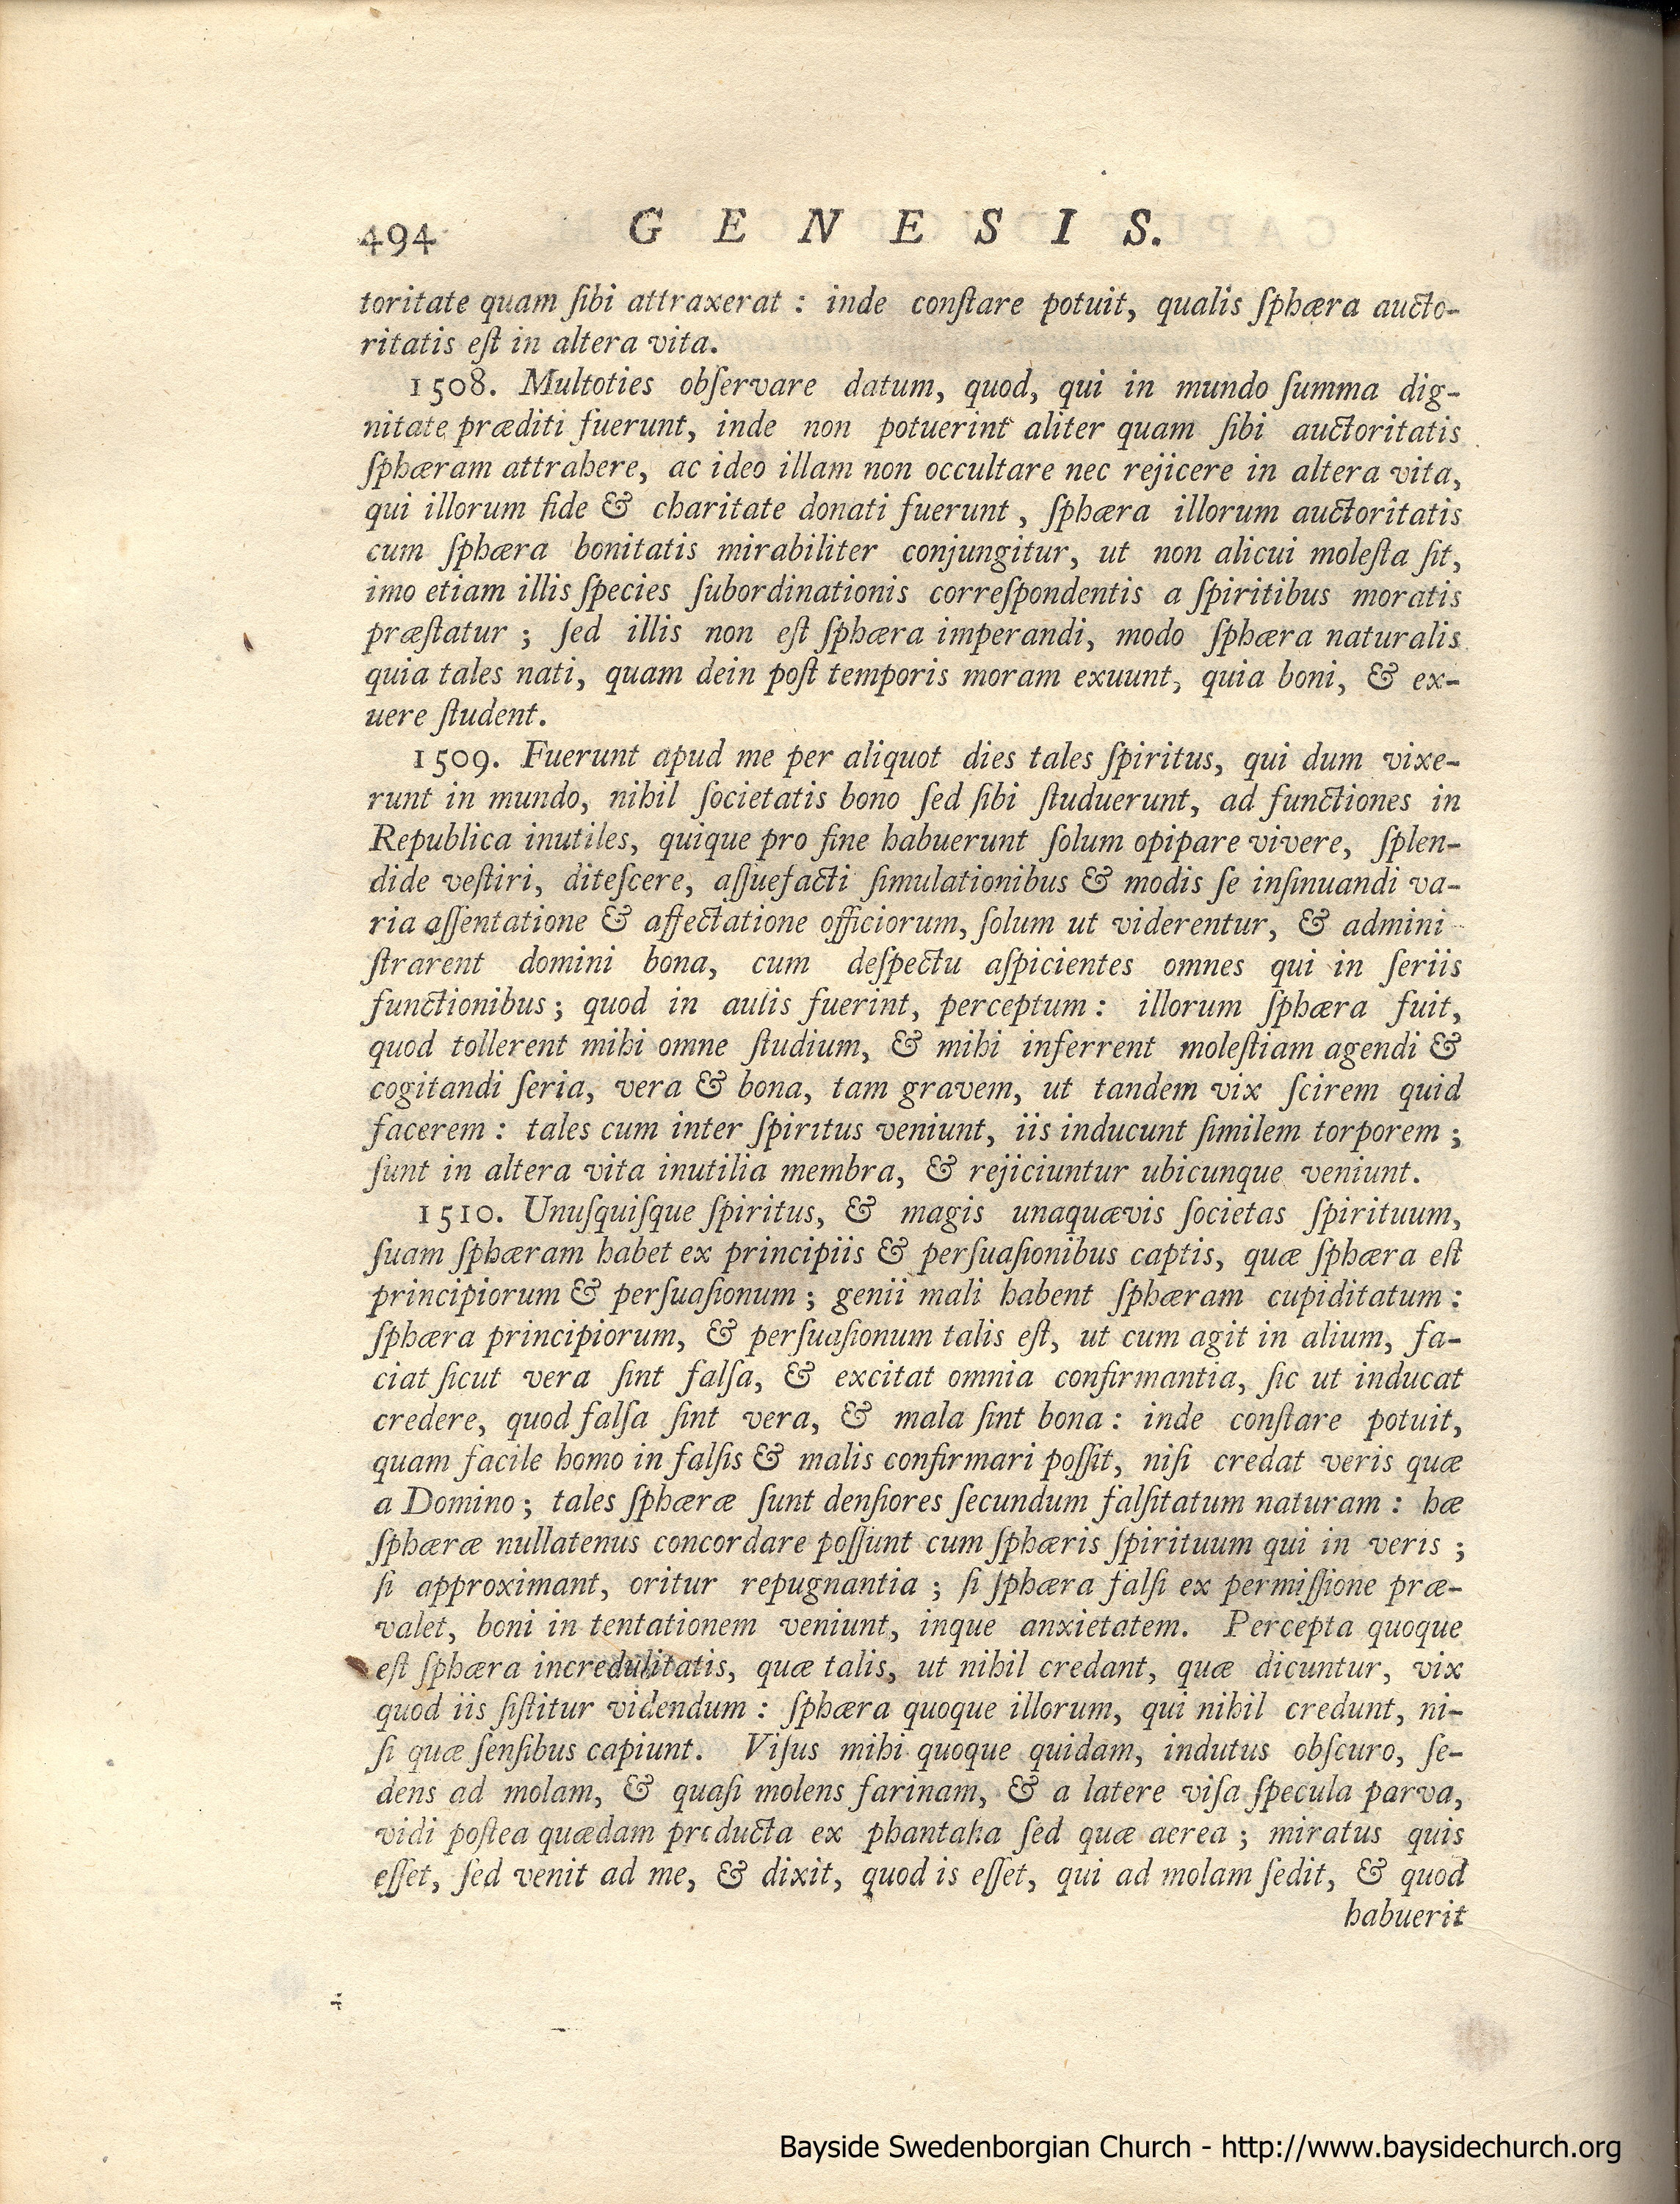 494 G E N E S I S.
toritate quam ſibi attraxerat : inde conſtare potuit, qualis ſphæra aucto-
ritatis eſt in altera vita.
1508. Multoties obſervare datum, quod, qui in mundo ſumma dig-
nitate præditi fuerunt, inde non potuerint aliter quam ſibi auctoritatis
ſphæram attrahere, ac ideo illam non occultare nec rejicere in altera vita,
qui illorum fide & charitate donati fuerunt, ſphæra illorum auctoritatis
cum ſphæra bonitatis mirabiliter conjungitur, ut non alicui moleſta ſit,
imo etiam illis ſpecies ſubordinationis correſpondentis a ſpiritibus moratis
præſtatur ; ſed illis non eſt ſphæra imperandi, modo ſphæra naturalis
quia tales nati, quam dein poſt temporis moram exuunt, quia boni, & ex-
uere ſtudent.
1509. Fuerunt apud me per aliquot dies tales ſpiritus, qui dum vixe-
runt in mundo, nihil ſocietatis bono ſed ſibi ſtuduerunt, ad functiones in
Republica inutiles, quique pro fine habuerunt ſolum opipare vivere, ſplen-
dide veſtiri, diteſcere, aſſuefacti ſimulationibus & modis ſe inſinuandi va-
ria aſſentatione & affectatione officiorum, ſolum ut viderentur, & admini-
ſtrarent domini bona, cum deſpectu aſpicientes omnes qui in ſeriis
functionibus ; quod in aulis fuerint, perceptum : illorum ſphæra fuit,
quod tollerent mihi omne ſtudium, & mihi inferrent moleſtiam agendi &
cogitandi ſeria, vera & bona, tam gravem, ut tandem vix ſcirem quid
facerem : tales cum inter ſpiritus veniunt, iis inducunt ſimilem torporem ;
ſunt in altera vita inutilia membra, & rejiciuntur ubicunque veniunt.
1510. Unuſquiſque ſpiritus, & magis unaquævis ſocietas ſpirituum,
ſuam ſphæram habet ex principiis & perſuaſionibus captis, quæ ſphæra eſt
principiorum & perſuaſionum ; genii mali habent ſphæram cupiditatum :
ſphæra principiorum, & perſuaſionum talis eſt, ut cum agit in alium, fa-
ciat ſicut vera ſint falſa, & excitat omnia confirmantia, ſic ut inducat
credere, quod falſa ſint vera, & mala ſint bona : inde conſtare potuit,
quam facile homo in falſis & malis confirmari poſſit, niſi credat veris quæ
a Domino ; tales ſphæræ ſunt denſiores ſecundum falſitatum naturam : hæ
ſphæræ nullatenus concordare poſſunt cum ſphæris ſpirituum qui in veris ;
ſi approximant, oritur repugnantia ; ſi ſphæra falſi ex permiſſione præ-
valet, boni in tentationem veniunt, inque anxietatem. Percepta quoque
eſt ſphæra incredulitatis, quæ talis, ut nihil credant, quæ dicuntur, vix
quod iis ſiſtitur videndum : ſphæra quoque illorum, qui nihil credunt, ni-
ſi quæ ſenſibus capiunt. Viſus mihi quoque quidam, indutus obſcuro, ſe-
dens ad molam, & quaſi molens farinam, & a latere viſa ſpecula parva,
vidi poſtea quædam producta ex phantaſia ſed quæ aerea ; miratus quis
eſſet, ſed venit ad me, & dixit, quod is eſſet, qui ad molam ſedit, & quod
habuerit
Bayside Swedenborgian Church - http://www.baysidechurch.org